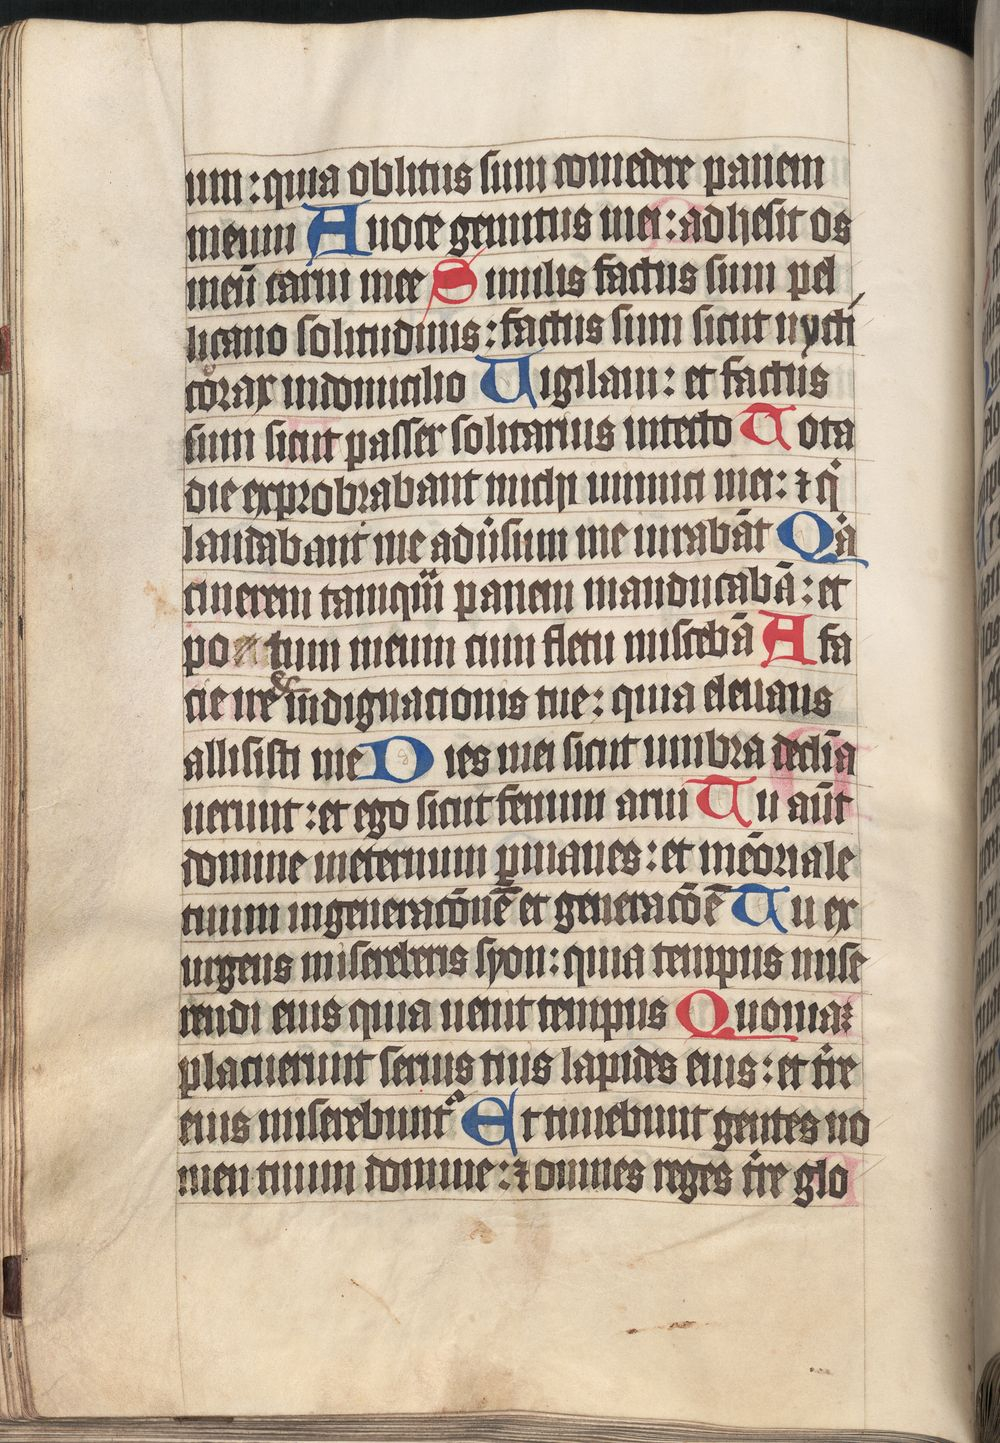 um : quia oblitus sum comedere panem
meum A uoce gemitus mei : adhesit os
meū carni mee S imilis factus sum pel
licano solitudinis : factus sum sicut nycti
corax indomicilio U igilaui : et factus
sum sicut passer solitarius intecto T ota
die exprobrabant michi inimici mei : ⁊ q̇
laudabant me adūsum me iurabāt Q ꝛ̇a
cinerem tamquā panem manducabā : et
po tum meum cum fletu miscebā A fa
cie ire & indignacionis tue : quia eleuans
allisisti me D ies mei sicut umbra declīa
uerunt : et ego sicut fenum arui T u aūt
domine ineternum ꝑmanes : et mēoriale
tuum ingeneracōnē et generacōē T u ex
urgens misereberis syon : quia tempus mise
rendi eius quia uenit tempus Q uoniaꝫ
placuerunt seruis tuis lapides eius : et tr̄e
eius miserebuntᷣ E t timebunt gentes no
men tuum domine : ⁊ omnes reges tr̄e glo